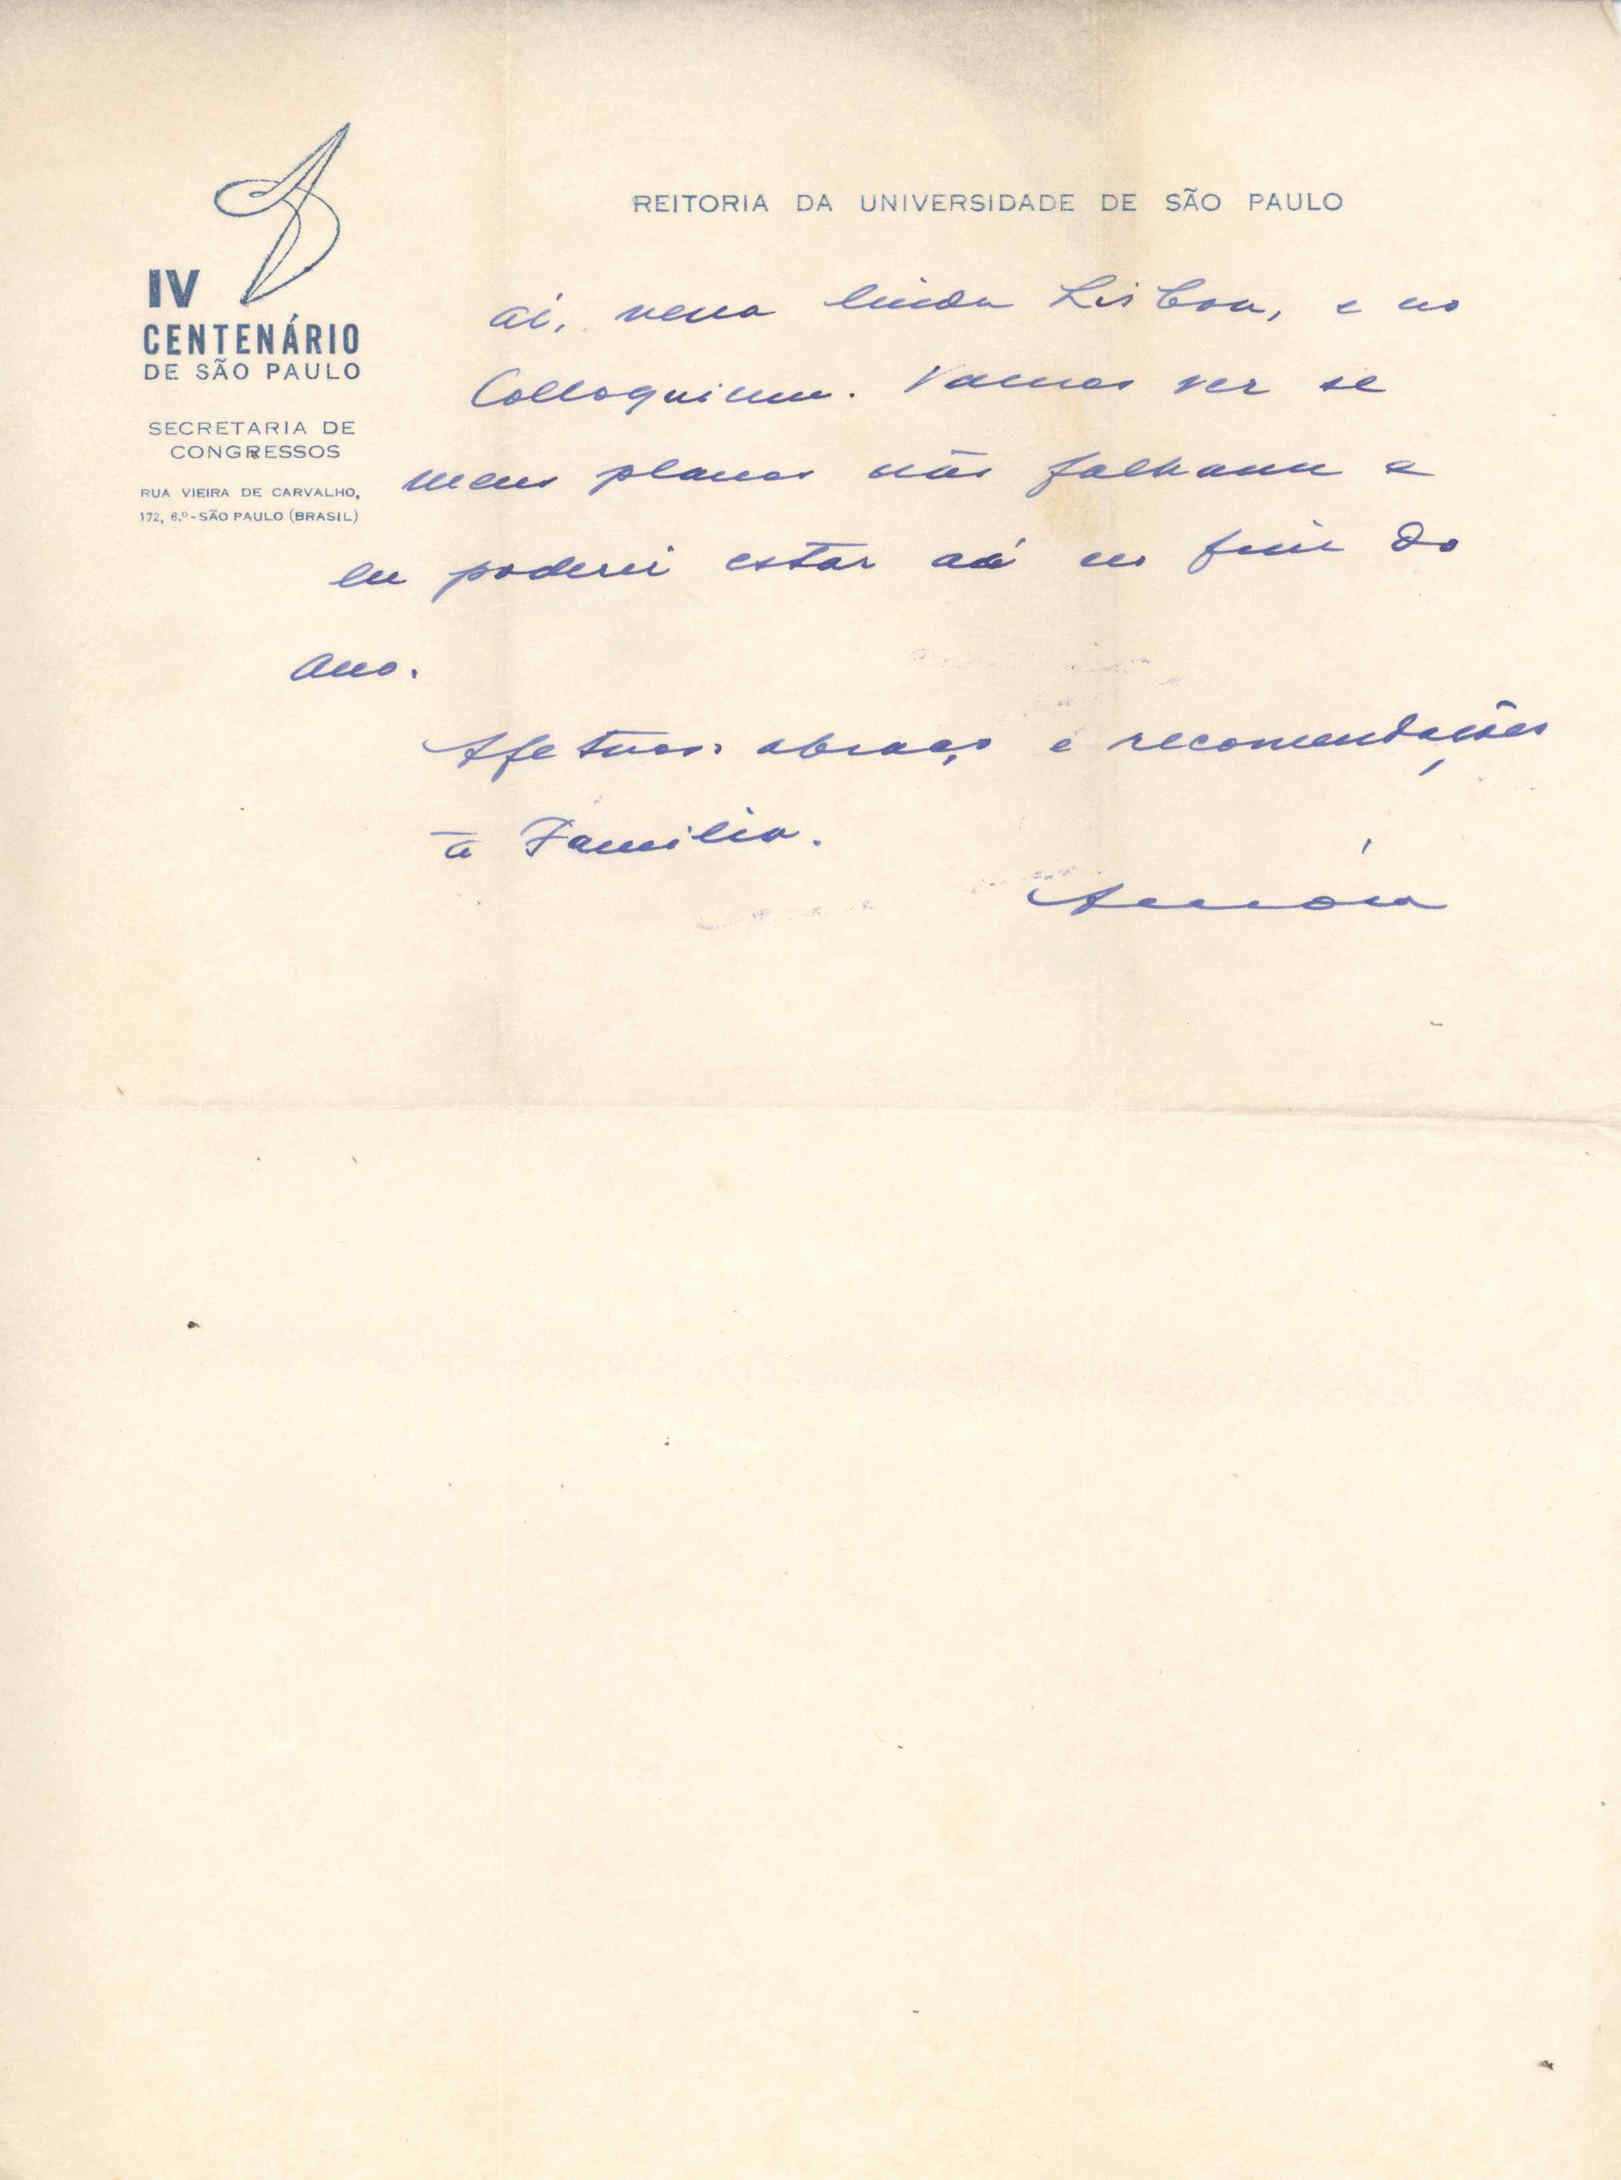 REITORIA DA UNIVERSIDADE DE SÃO PAULO
IV
CENTENÁRIO
DE SÃO PAULO
SECRETARIA DE
CONGRESSOS
RUA VIEIRA DE CARVALHO,
172, 6.º - SÃO PAULO (BRASIL)
aí, nessa linda Lisboa, e no
Colloquium. Vamos ver se
meus planos não falham e
eu poderei estar aí no fim do
ano.
Afetuoso abraço e recomendações
à Familia.